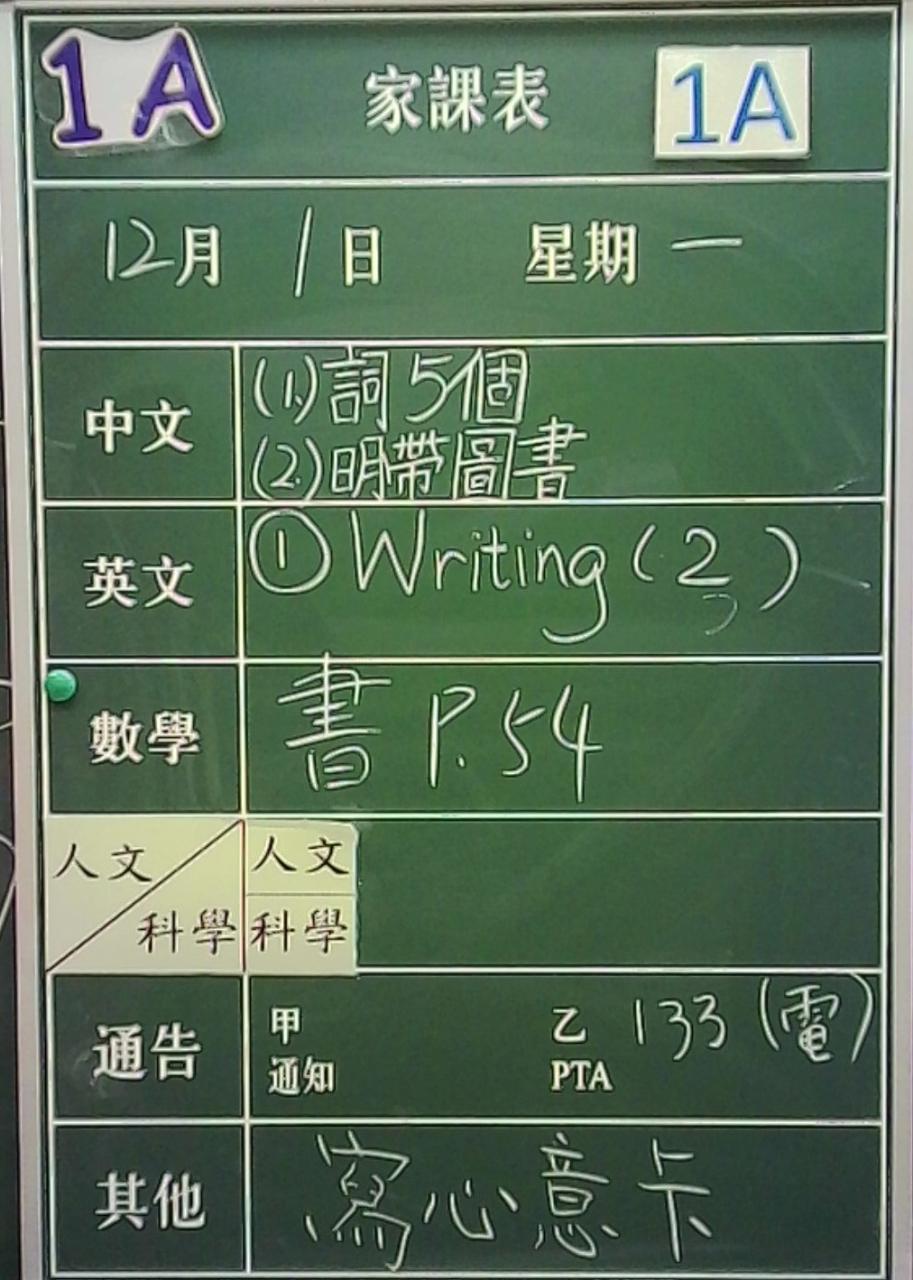 1A 家課表 1A
12月 1日 星期一
中文 (1)詞5個
(2)明帶圖書
英文 ①Writing(2)
數學 書 P.54
人文 人文
科學 科學
通告 甲 乙 133(電)
通知 PTA
其他 寫心意卡